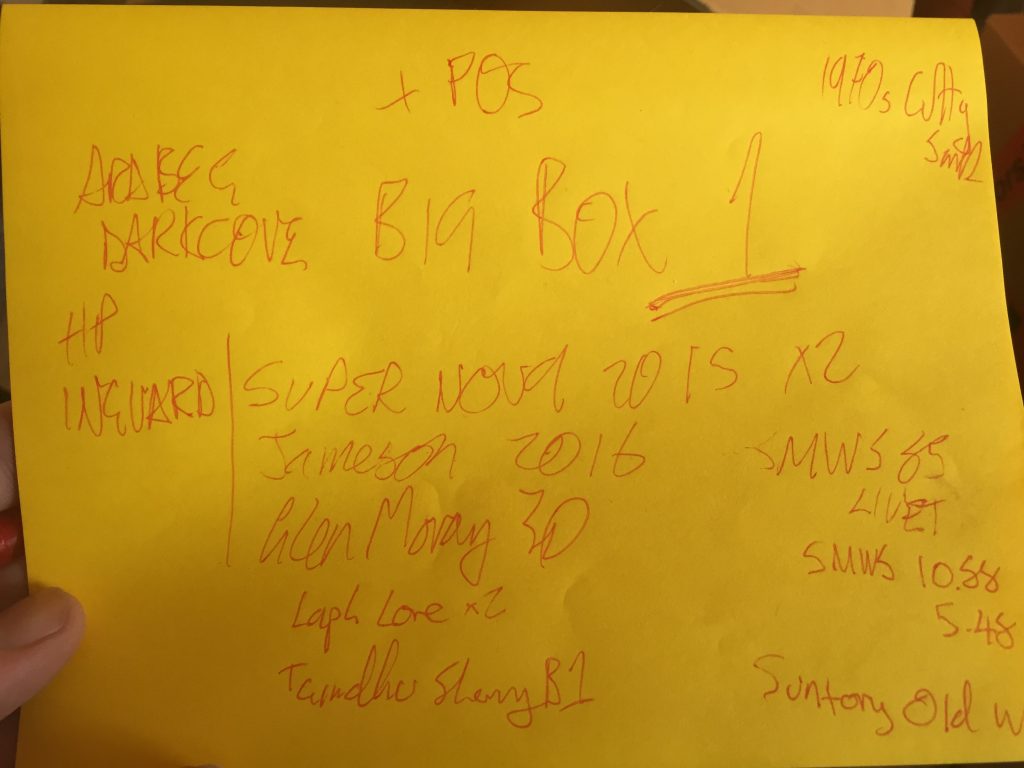 + POS
1970s Cutty
Sark
ARDBEG
DARKCOVE
BIG BOX 1
HP
INGUARD
SUPER NOVA 2015 x2
Jameson 2016
SMWS 85
LIVET
Glen Moray 30
SMWS 10.88
Laph Lore x2
5.48
Tamdhu Sherry B1
Suntory Old W